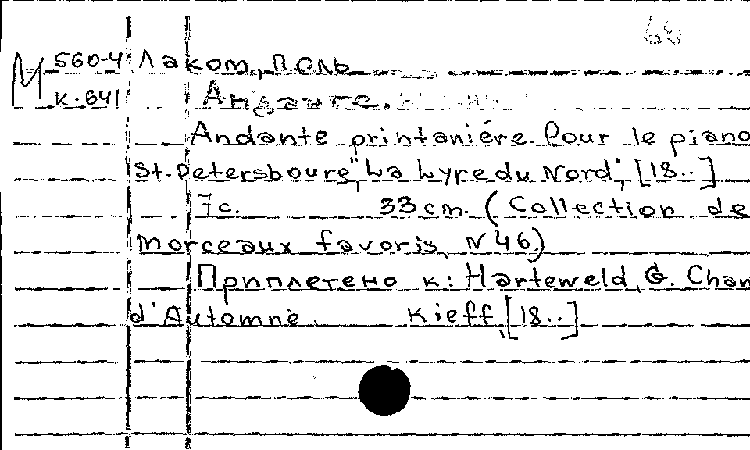 68
М 560-4 Лаком, Поль
к. 641 Анданте.
Andante printaniére. Pour le piano
St. Petersbourg, "La Lyre du Nord", [18..]
7с. 33 cm. (Collection de
morceaux favoris, N 46)
Приплетено к: Harteweld, G. Chan
d'Automne. Kieff, [18..]